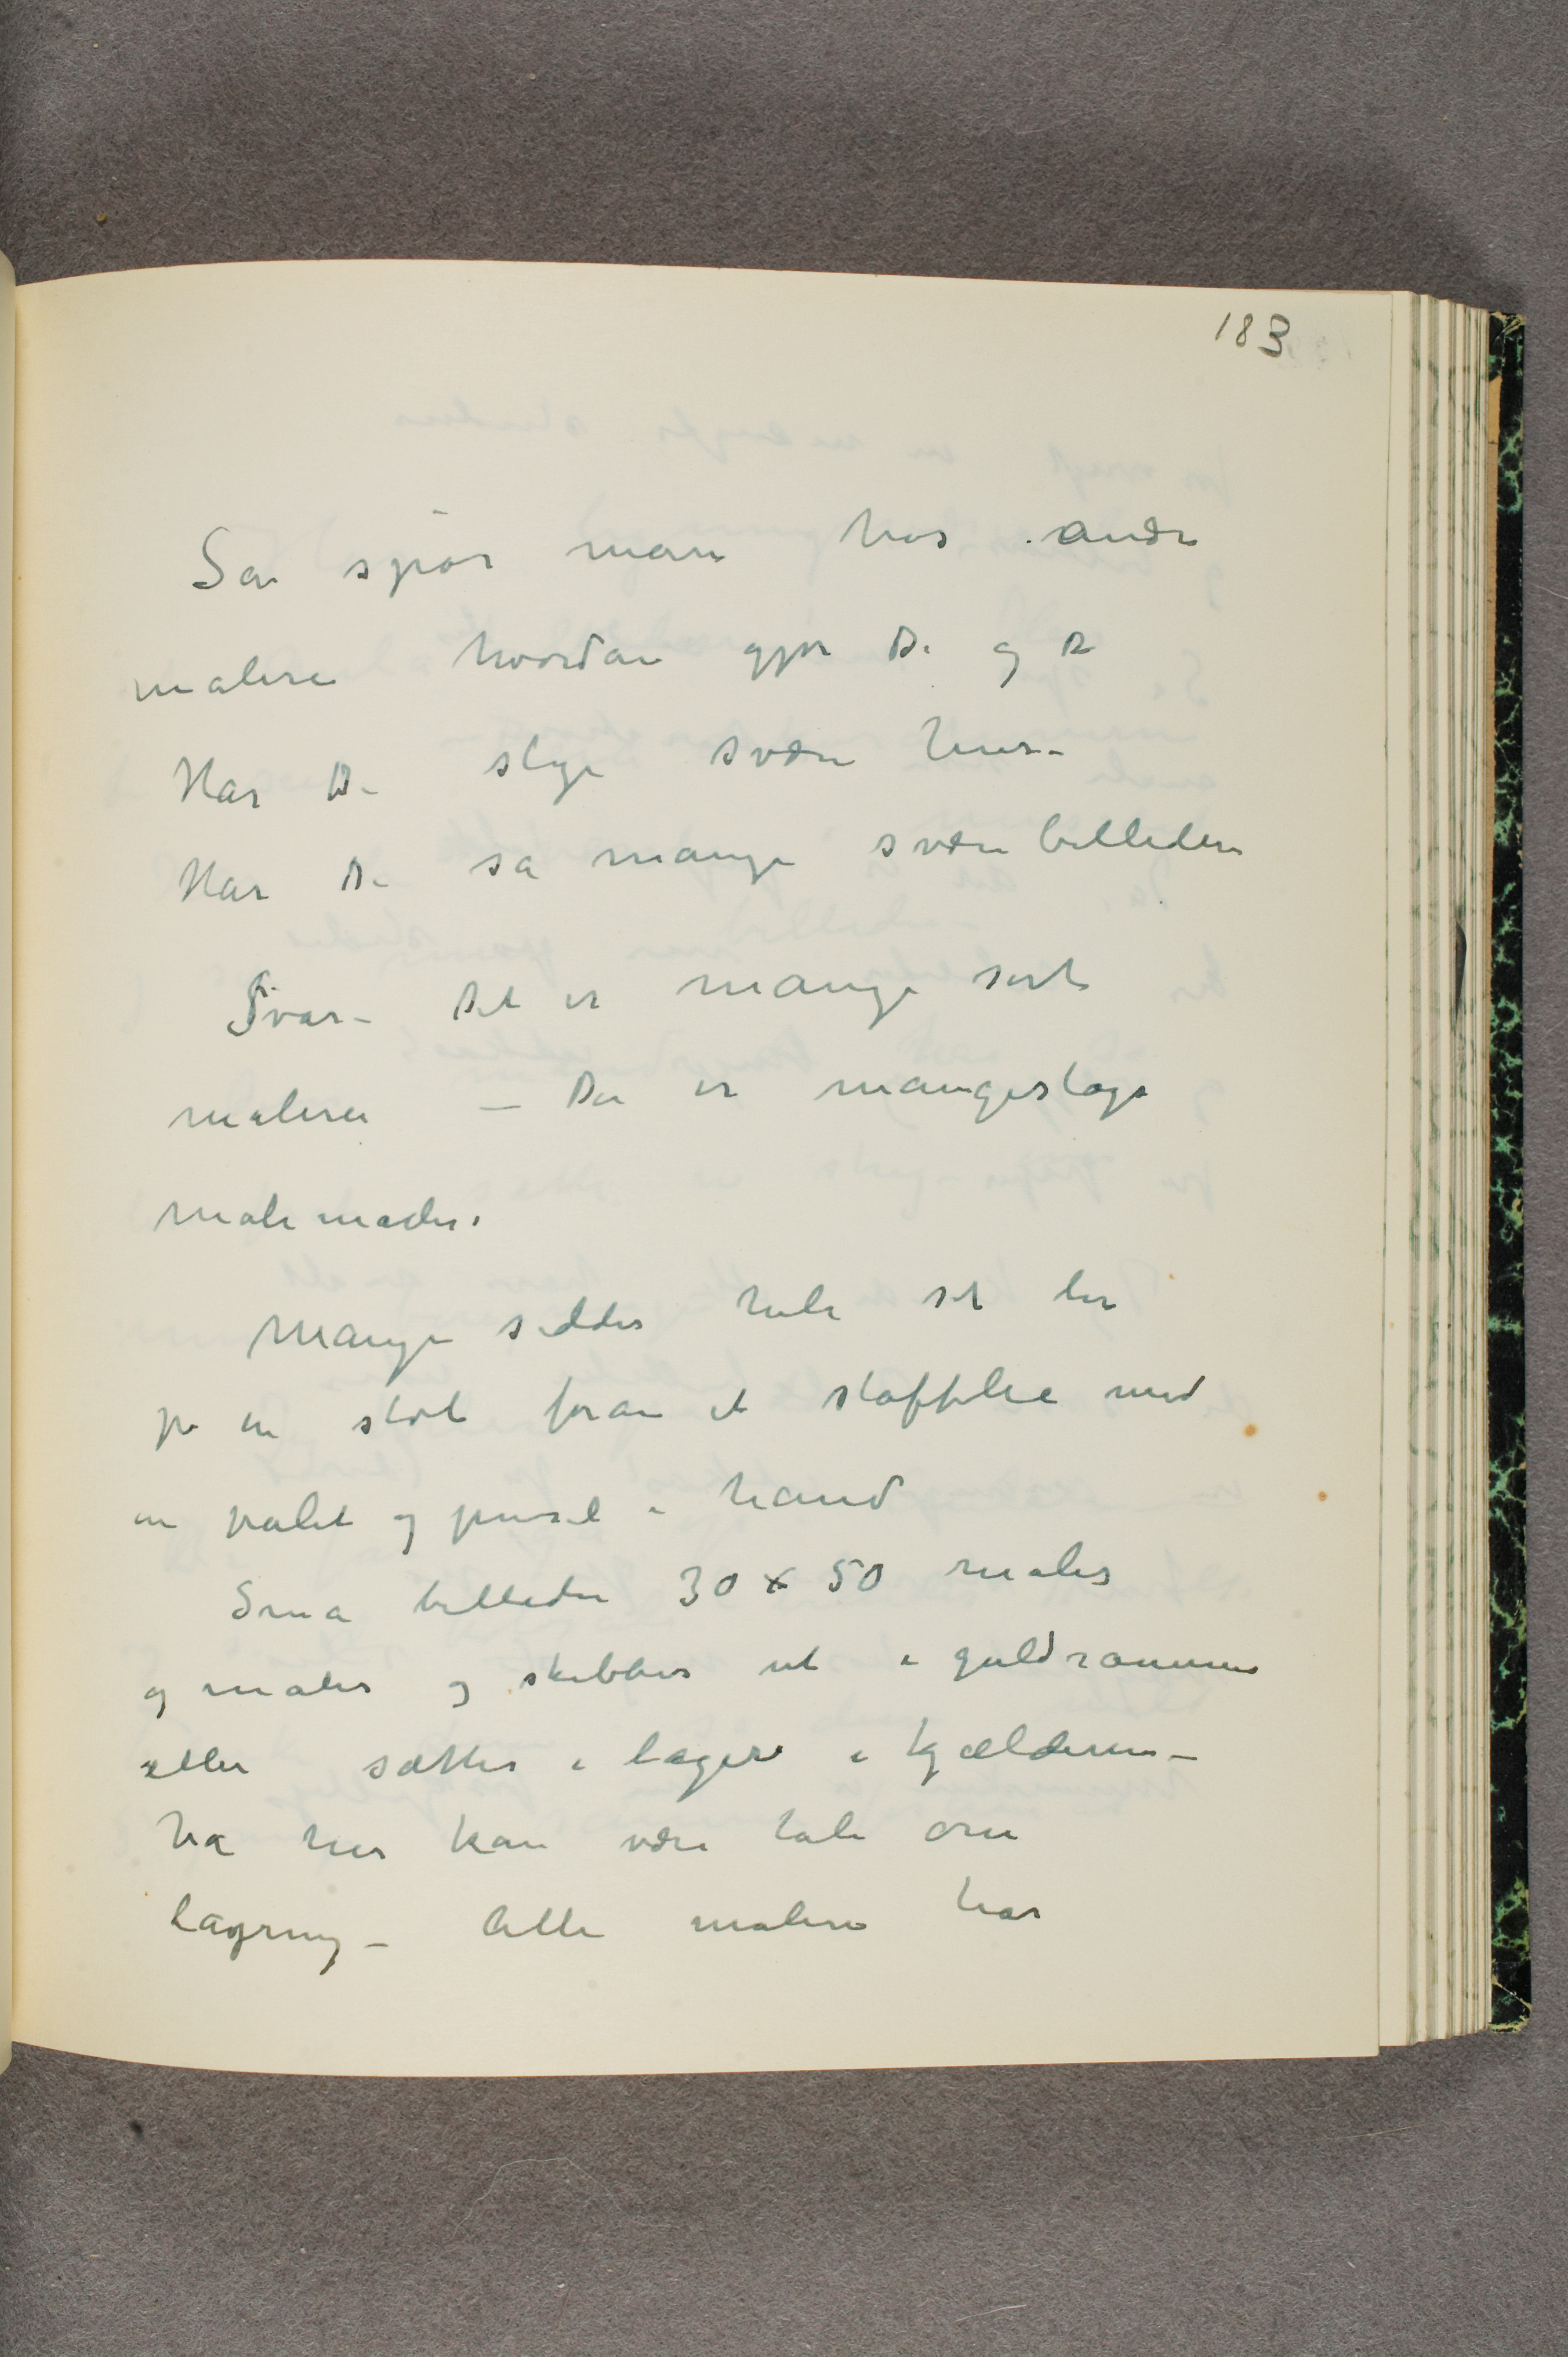 183
Så spør man hos andre
malere hvordan gjør De og De
Har De slige svære hus –
Har De så mange svære billeder
Svar – Det er mange sort
malere – Der er mangeslags
malemader.
Mange sidder hele sit liv
på en stol foran et staffeli med
en palet og pensel i hånd
Små billeder 30 x 50 males
og males og skibbes ut i guldrammer
eller sættes i lager i kjælderen –
Hva her kan være tale om
lagring – Alle malere har